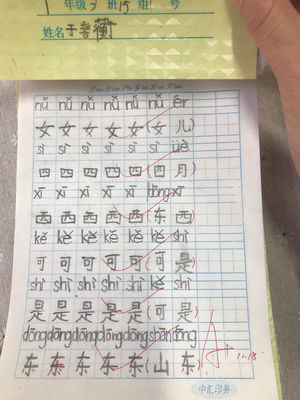 1 年级 3 班 15 组 号
姓名 于誉蘅
nǚ nǚ nǚ nǚ nǚ nǚ ér
女 女 女 女 女 (女 儿)
sì sì sì sì sì sì üè
四 四 四 四 四 (四 月)
xī xī xī xī xī dōng xī
西 西 西 西 西 (东 西)
kě kě kě kě kě kě shì
可 可 可 可 可 (可 是)
shì shì shì shì shì kě
是 是 是 是 是 (可 是)
dōng dōng dōng dōng dōng shān dōng
东 东 东 东 东 (山 东)
11.18
中汇印务